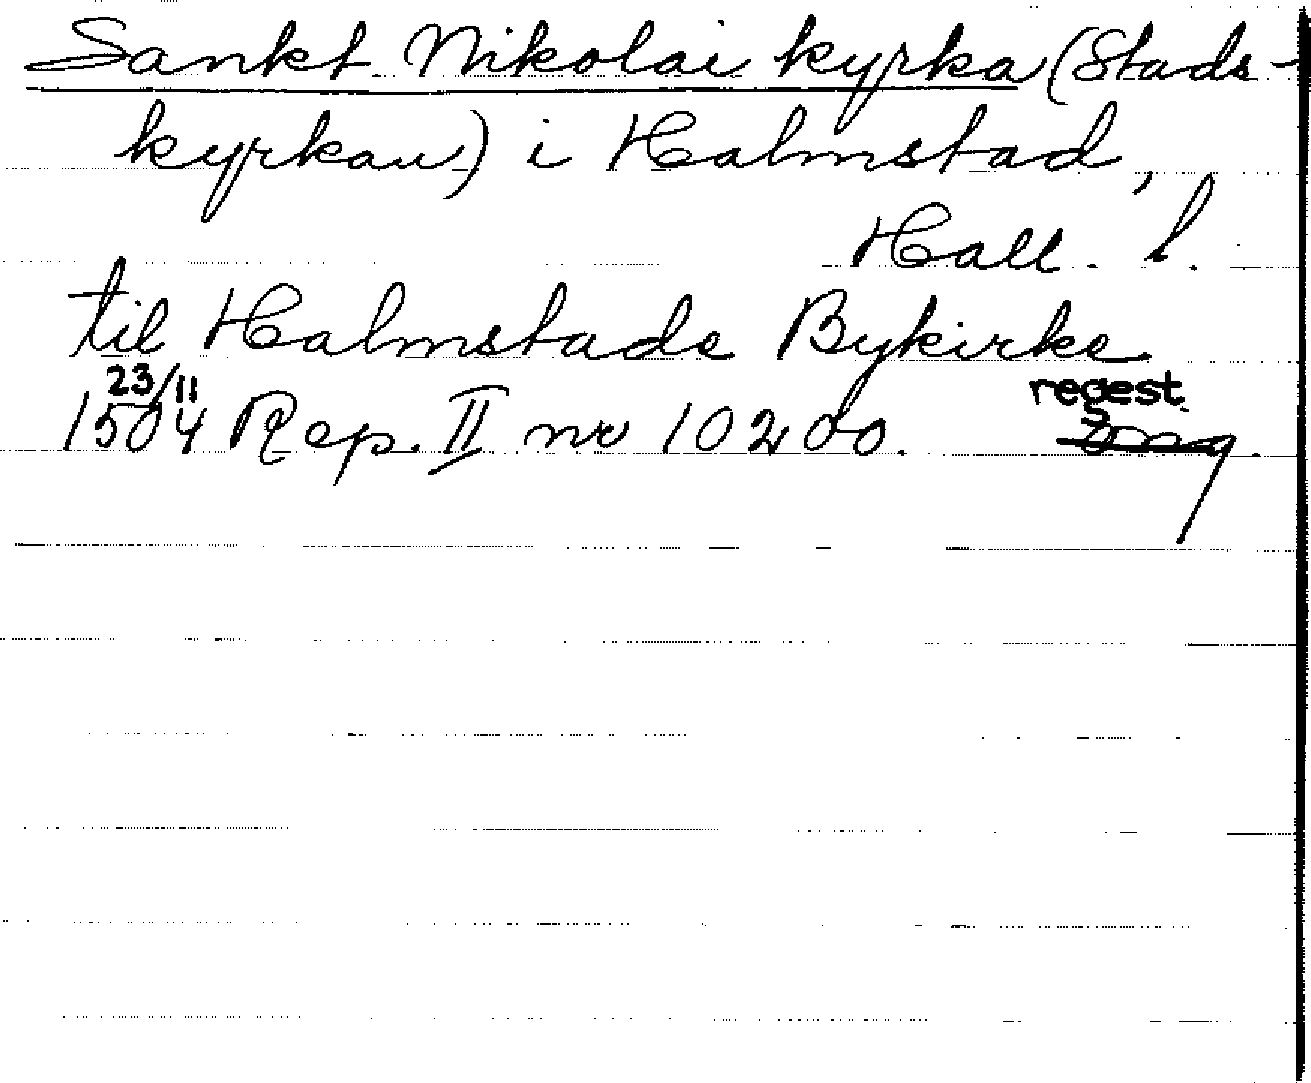 Sankt Nikolai kyrka (Stads-
kyrkan) i Halmstad,
Hall. l.
til Halmstads Bykirke
23/11 regest.
1504 Rep. II nr 10200.